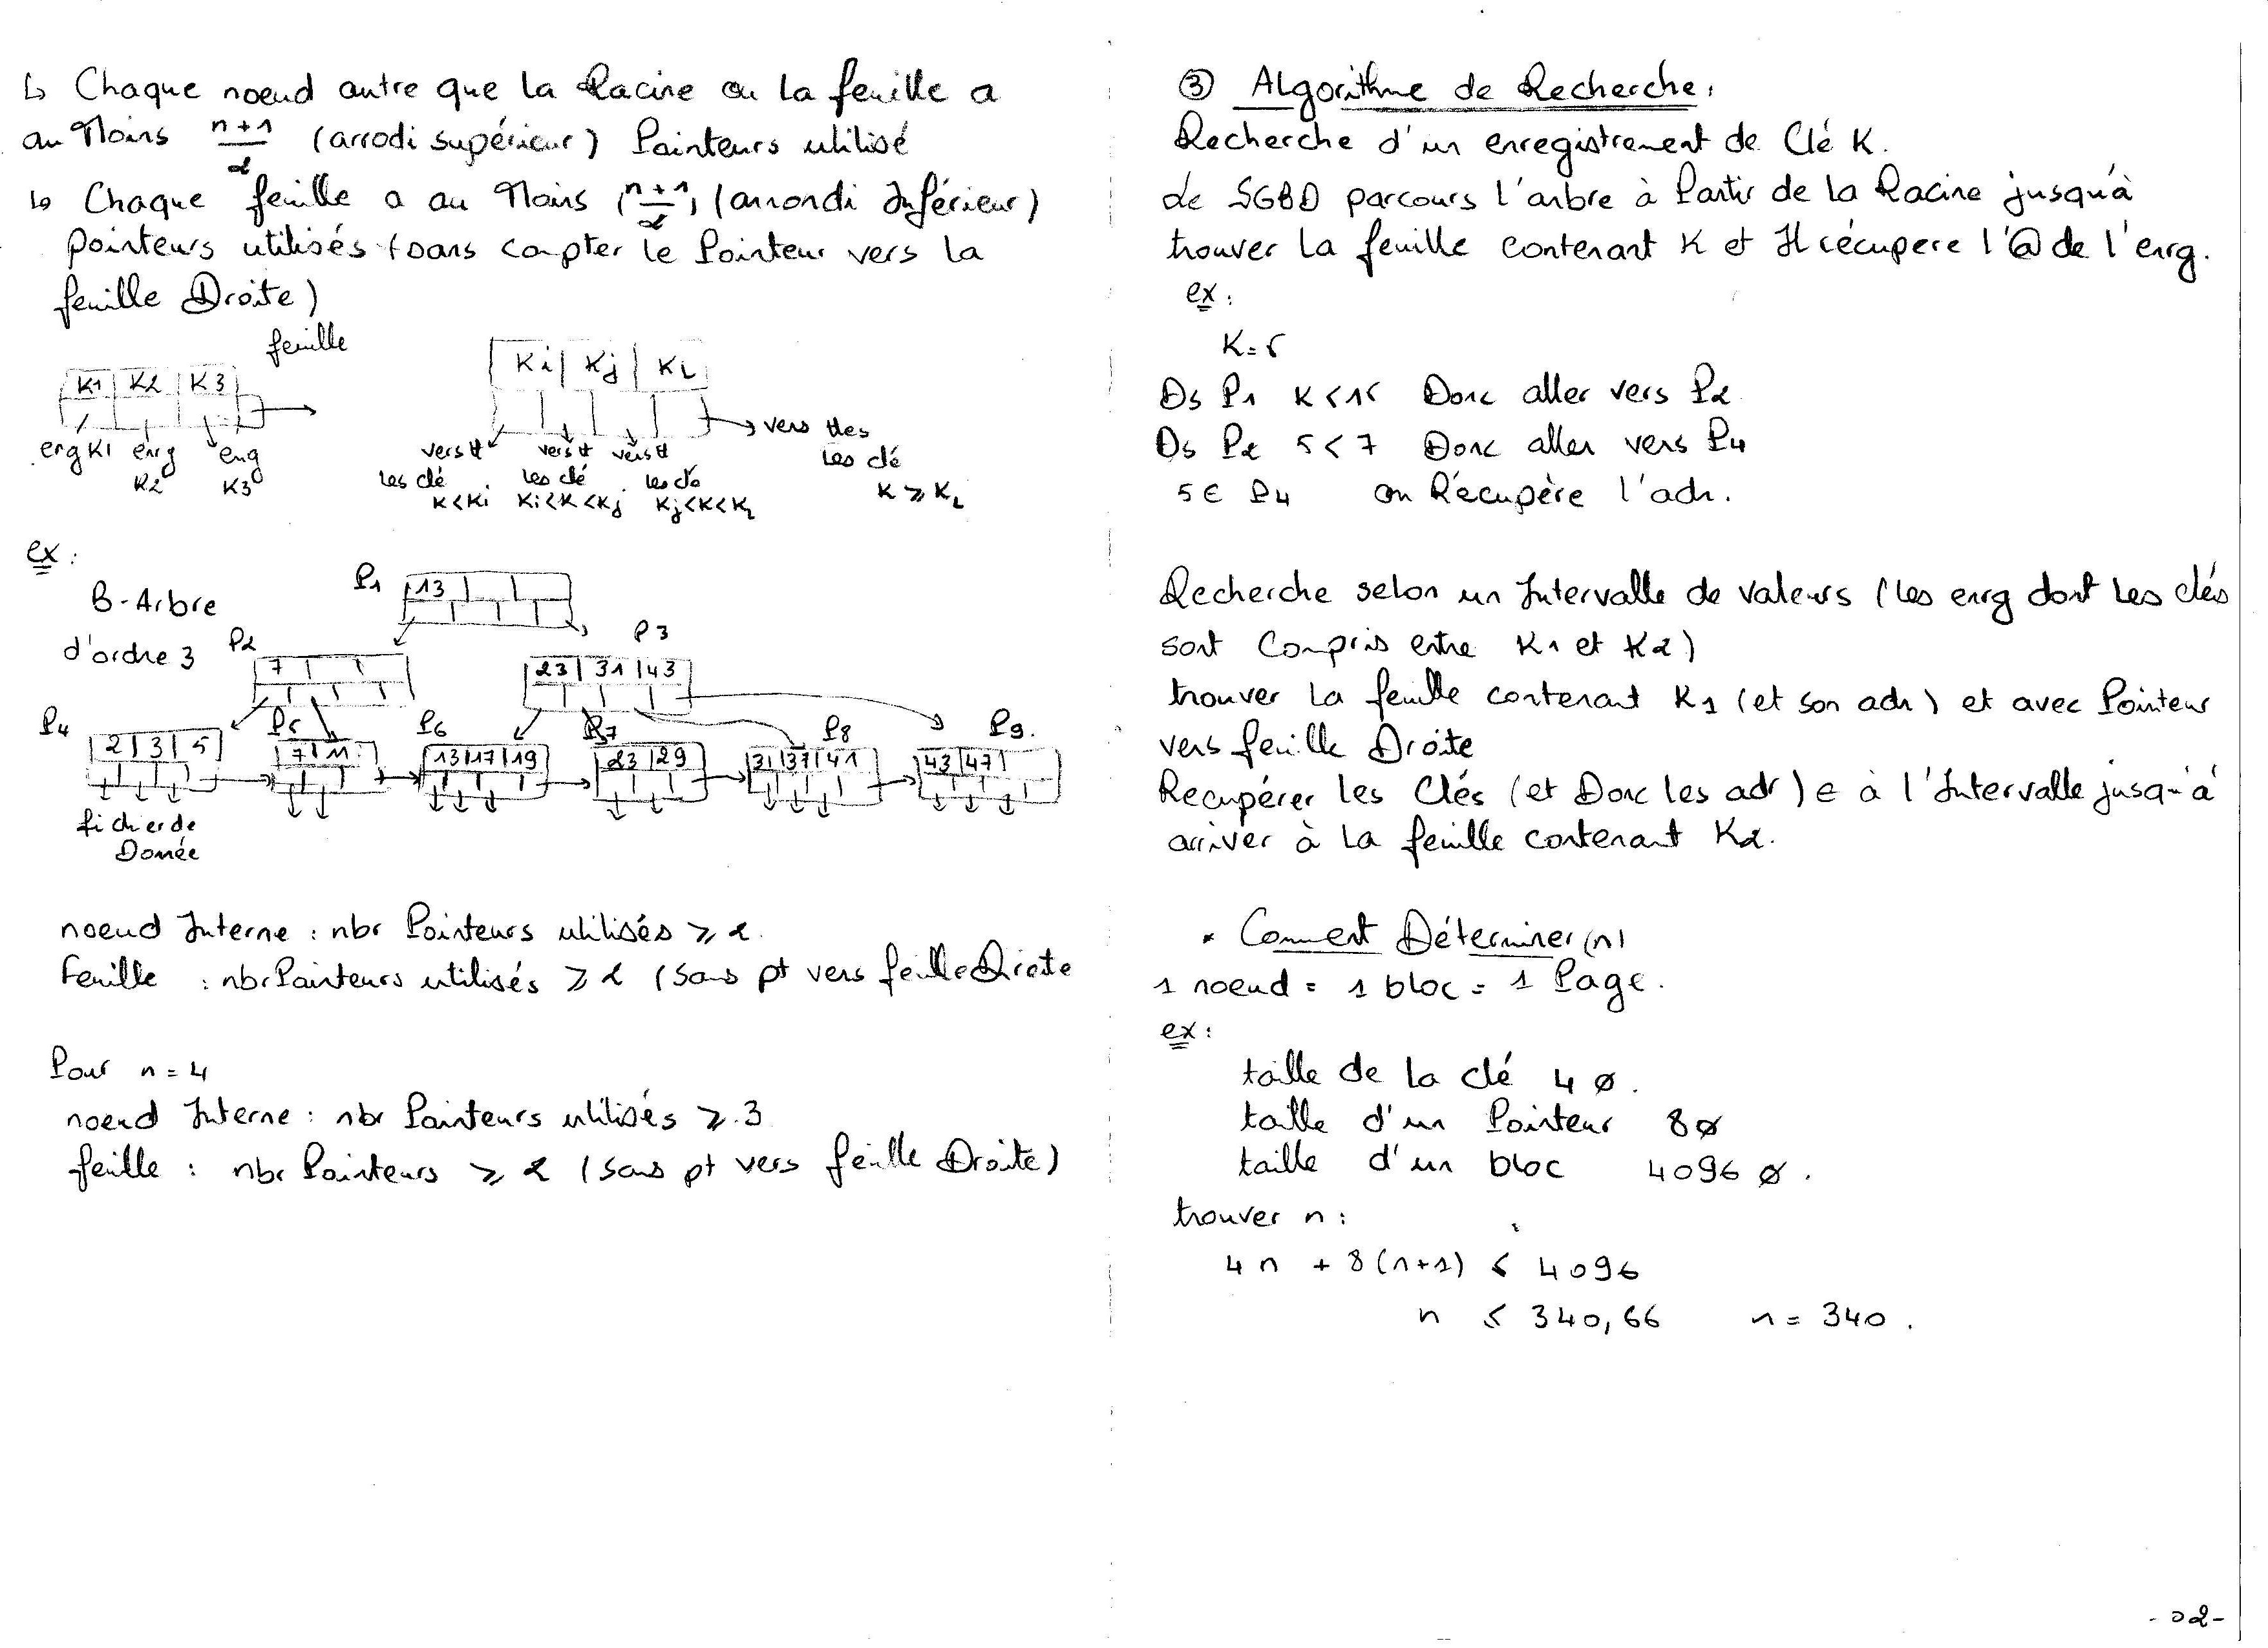 ↳ Chaque noeud autre que la Racine ou la feuille a
au Moins n+1/2 (arrodi supérieur) Pointeurs utilisé
↳ Chaque feuille a au Moins (n+1/2) (arrondi Inférieur)
pointeurs utilisés (sans compter le Pointeur vers la
feuille Droite)
feuille
K1 | K2 | K3
erg K1 enrg K2 eng K3
Ki | Kj | KL
vers tt les clé K < Ki
vers tt les clé Ki < K < Kj
vers tt les clé Kj < K < KL
vers ttes les clé K ⩾ KL
ex :
B-Arbre
d'ordre 3
P1
13
P2
7
P3
23 | 31 | 43
P4
2 | 3 | 5
P5
7 | 11
P6
13 | 17 | 19
P7
23 | 29
P8
31 | 37 | 41
P9.
43 | 47 |
fichier de
Donnée
noeud Interne : nbr Pointeurs utilisés ⩾ 2.
Feuille : nbr Pointeurs utilisés ⩾ 2 (sans pt vers feuille Droite
Pour n = 4
noeud Interne : nbr Pointeurs utilisés ⩾ 3
feuille : nbr Pointeurs ⩾ 2 (sans pt vers feuille Droite)
③ Algorithme de Recherche :
Recherche d'un enregistrement de Clé K.
Le SGBD parcours l'arbre à Partir de la Racine jusqu'à
trouver la feuille contenant K et Il récupere l'@ de l'enrg.
ex :
K = 5
Ds P1 K < 15 Donc aller vers P2
Ds P2 5 < 7 Donc aller vers P4
5 ∈ P4 on Récupère l'adr.
Recherche selon un Intervalle de valeurs (les enrg dont les clés
sont Compris entre K1 et K2)
trouver la feuille contenant K1 (et son adr) et avec Pointeur
vers feuille Droite
Recupérer les Clés (et Donc les adr) ∈ à l'Intervalle jusqu'à
arriver à la feuille contenant K2.
* Comment Déterminer (n)
1 noeud = 1 bloc = 1 Page.
ex :
taille de la clé 4 Ø.
taille d'un Pointeur 8 Ø
taille d'un bloc 4096 Ø.
trouver n :
4n + 8(n+1) ⩽ 4096
n ⩽ 340,66 n = 340.
-02-